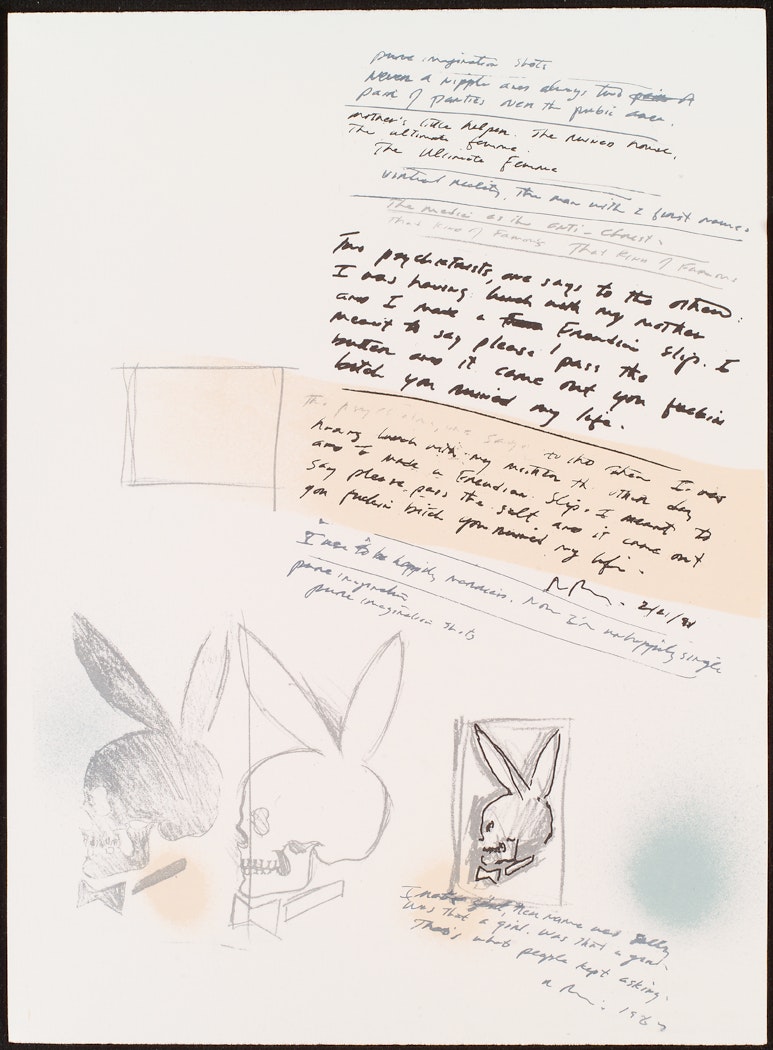 pure imagination shots
Never a nipple and always two pair A
pair of panties over the pubic area.
mother's little helper. The ruined house.
The ultimate femme.
The Ultimate Femme
virtual reality. The man with 2 first names.
The medici as the anti-Christ.
That kind of Famous That kind of Famous
Two psychiatrists, one says to the other:
I was having lunch with my mother
and I made a Freudian slip. I
meant to say please pass the
butter and it came out you fuckin
bitch you ruined my life.
The psychiatrist, one says to the other I was
having lunch with my mother the other day
and I made a Freudian slip. I meant to
say please pass the salt and it came out
you fuckin bitch you ruined my life.
2/21/91
I use to be happily married. Now I'm unhappily single
pure imagination
pure imagination shots
I met a girl, her name was Sally
Was that a girl. Was that a girl.
That's what people kept asking.
R Prince 1987